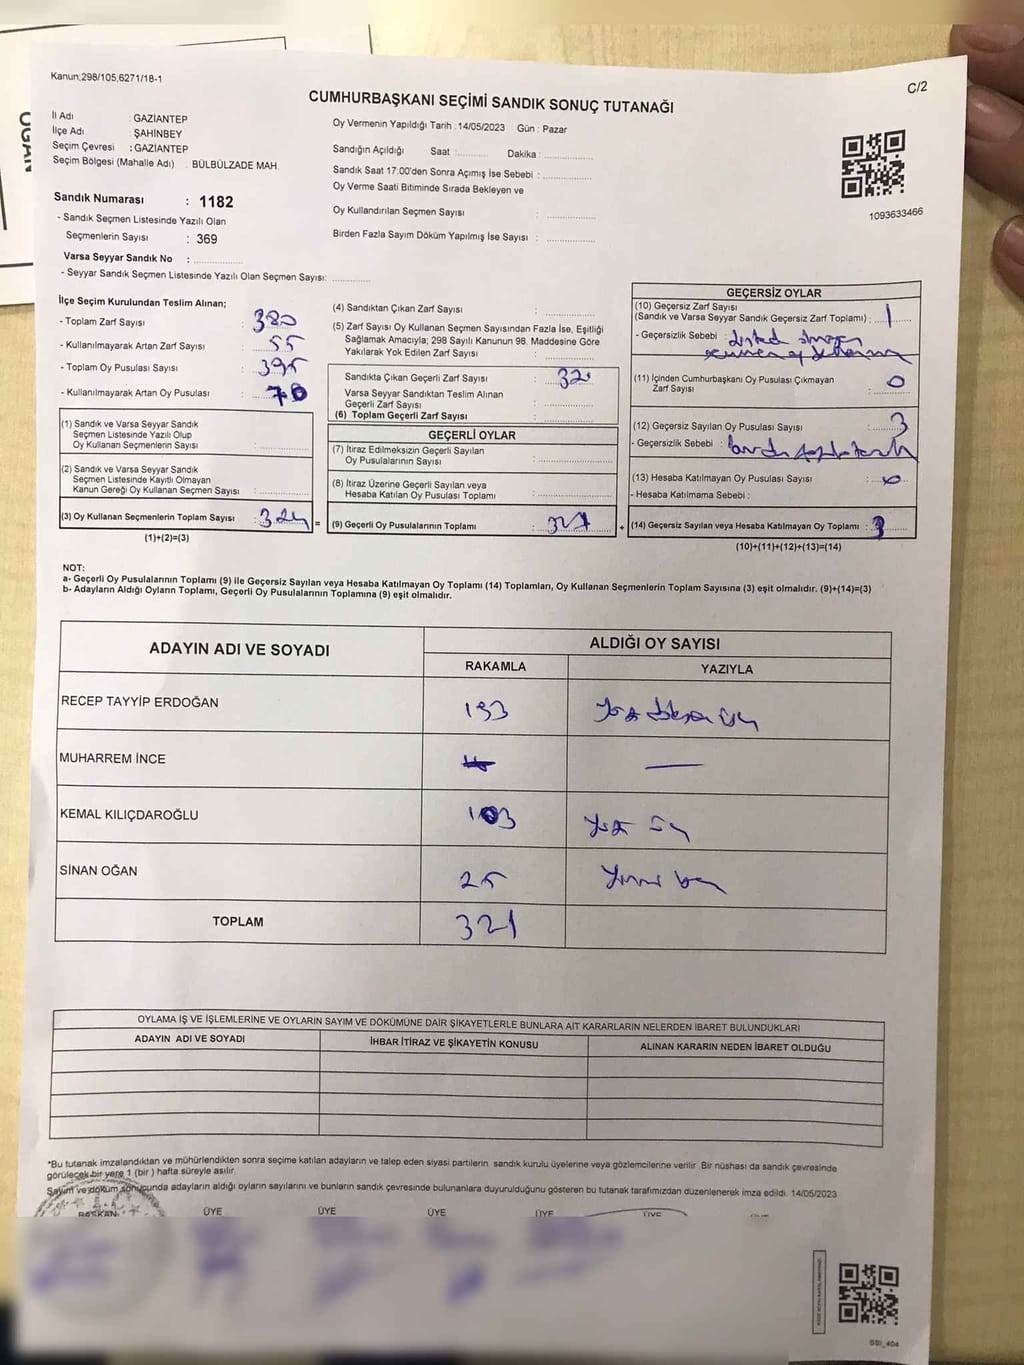 Kanun,298/105,6271/18-1
C/2
CUMHURBAŞKANI SEÇİMİ SANDIK SONUÇ TUTANAĞI
İl Adı : GAZİANTEP
İlçe Adı : ŞAHİNBEY
Seçim Çevresi : GAZİANTEP
Seçim Bölgesi (Mahalle Adı) : BÜLBÜLZADE MAH.
Sandık Numarası : 1182
- Sandık Seçmen Listesinde Yazılı Olan
Seçmenlerin Sayısı : 369
Varsa Seyyar Sandık No :
- Seyyar Sandık Seçmen Listesinde Yazılı Olan Seçmen Sayısı:
Oy Vermenin Yapıldığı Tarih : 14/05/2023 Gün : Pazar
Sandığın Açıldığı Saat : Dakika :
Sandık Saat 17:00'den Sonra Açımış İse Sebebi :
Oy Verme Saati Bitiminde Sırada Bekleyen ve
Oy Kullandırılan Seçmen Sayısı :
Birden Fazla Sayım Döküm Yapılmış İse Sayısı :
1093633466
İlçe Seçim Kurulundan Teslim Alınan;
- Toplam Zarf Sayısı : 380
- Kullanılmayarak Artan Zarf Sayısı : 55
- Toplam Oy Pusulası Sayısı : 395
- Kullanılmayarak Artan Oy Pusulası : 70
(1) Sandık ve Varsa Seyyar Sandık
Seçmen Listesinde Yazılı Olup
Oy Kullanan Seçmenlerin Sayısı :
(2) Sandık ve Varsa Seyyar Sandık
Seçmen Listesinde Kayıtlı Olmayan
Kanun Gereği Oy Kullanan Seçmen Sayısı :
(3) Oy Kullanan Seçmenlerin Toplam Sayısı : 324 =
(1)+(2)=(3)
(4) Sandıktan Çıkan Zarf Sayısı :
(5) Zarf Sayısı Oy Kullanan Seçmen Sayısından Fazla İse, Eşitliği
Sağlamak Amacıyla; 298 Sayılı Kanunun 98. Maddesine Göre
Yakılarak Yok Edilen Zarf Sayısı :
Sandıkta Çıkan Geçerli Zarf Sayısı :
Varsa Seyyar Sandıktan Teslim Alınan
Geçerli Zarf Sayısı :
(6) Toplam Geçerli Zarf Sayısı :
GEÇERLİ OYLAR
(7) İtiraz Edilmeksizin Geçerli Sayılan
Oy Pusulalarının Sayısı :
(8) İtiraz Üzerine Geçerli Sayılan veya
Hesaba Katılan Oy Pusulası Toplamı :
(9) Geçerli Oy Pusulalarının Toplamı : +
GEÇERSİZ OYLAR
(10) Geçersiz Zarf Sayısı
(Sandık ve Varsa Seyyar Sandık Geçersiz Zarf Toplamı) : 1
- Geçersizlik Sebebi :
(11) İçinden Cumhurbaşkanı Oy Pusulası Çıkmayan
Zarf Sayısı : 0
(12) Geçersiz Sayılan Oy Pusulası Sayısı : 3
- Geçersizlik Sebebi :
(13) Hesaba Katılmayan Oy Pusulası Sayısı : 0
- Hesaba Katılmama Sebebi :
(14) Geçersiz Sayılan veya Hesaba Katılmayan Oy Toplamı : 3
(10)+(11)+(12)+(13)=(14)
NOT:
a- Geçerli Oy Pusulalarının Toplamı (9) ile Geçersiz Sayılan veya Hesaba Katılmayan Oy Toplamı (14) Toplamları, Oy Kullanan Seçmenlerin Toplam Sayısına (3) eşit olmalıdır. (9)+(14)=(3)
b- Adayların Aldığı Oyların Toplamı, Geçerli Oy Pusulalarının Toplamına (9) eşit olmalıdır.
ADAYIN ADI VE SOYADI ALDIĞI OY SAYISI
RAKAMLA YAZIYLA
RECEP TAYYİP ERDOĞAN 193 Yüz doksan üç
MUHARREM İNCE
KEMAL KILIÇDAROĞLU 103 Yüz üç
SİNAN OĞAN 25 Yirmi beş
TOPLAM 321
OYLAMA İŞ VE İŞLEMLERİNE VE OYLARIN SAYIM VE DÖKÜMÜNE DAİR ŞİKAYETLERLE BUNLARA AİT KARARLARIN NELERDEN İBARET BULUNDUKLARI
ADAYIN ADI VE SOYADI İHBAR İTİRAZ VE ŞİKAYETİN KONUSU ALINAN KARARIN NEDEN İBARET OLDUĞU
*Bu tutanak imzalandıktan ve mühürlendikten sonra seçime katılan adayların ve talep eden siyasi partilerin sandık kurulu üyelerine veya gözlemcilerine verilir. Bir nüshası da sandık çevresinde
görülecek bir yere 1 (bir ) hafta süreyle asılır.
Sayım ve döküm sonucunda adayların aldığı oyların sayılarını ve bunların sandık çevresinde bulunanlara duyurulduğunu gösteren bu tutanak tarafımızdan düzenlenerek imza edildi. 14/05/2023
BAŞKAN ÜYE ÜYE ÜYE ÜYE ÜYE